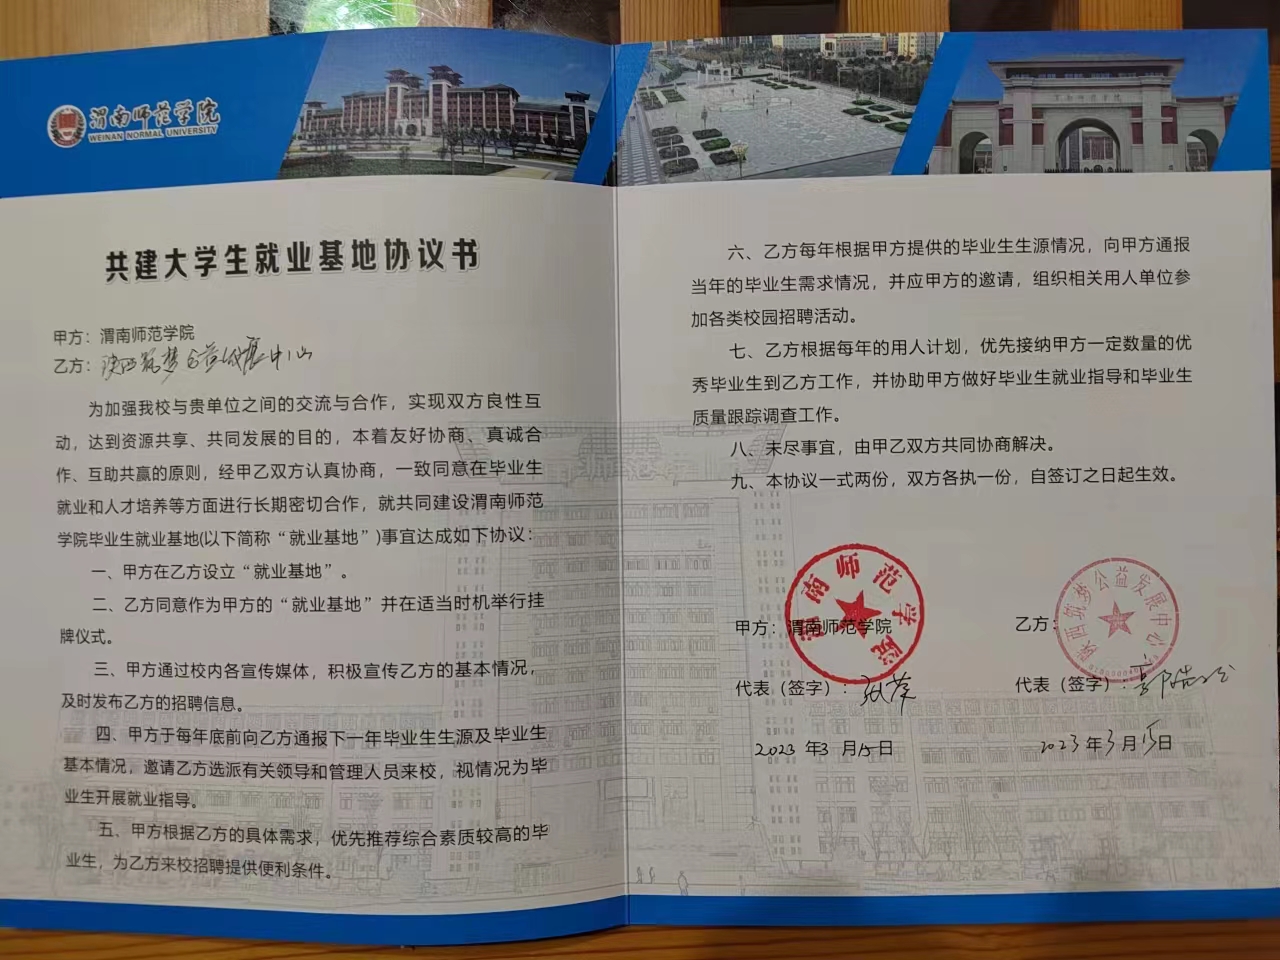 渭南师范学院
WEINAN NORMAL UNIVERSITY
渭南师范学院
共建大学生就业基地协议书
甲方：渭南师范学院
乙方：陕西筑梦公益发展中心
为加强我校与贵单位之间的交流与合作，实现双方良性互
动，达到资源共享、共同发展的目的，本着友好协商、真诚合
作、互助共赢的原则，经甲乙双方认真协商，一致同意在毕业生
就业和人才培养等方面进行长期密切合作，就共同建设渭南师范
学院毕业生就业基地(以下简称“就业基地”)事宜达成如下协议：
一、甲方在乙方设立“就业基地”。
二、乙方同意作为甲方的“就业基地”并在适当时机举行挂
牌仪式。
三、甲方通过校内各宣传媒体，积极宣传乙方的基本情况，
及时发布乙方的招聘信息。
四、甲方于每年底前向乙方通报下一年毕业生生源及毕业生
基本情况，邀请乙方选派有关领导和管理人员来校，视情况为毕
业生开展就业指导。
五、甲方根据乙方的具体需求，优先推荐综合素质较高的毕
业生，为乙方来校招聘提供便利条件。
六、乙方每年根据甲方提供的毕业生生源情况，向甲方通报
当年的毕业生需求情况，并应甲方的邀请，组织相关用人单位参
加各类校园招聘活动。
七、乙方根据每年的用人计划，优先接纳甲方一定数量的优
秀毕业生到乙方工作，并协助甲方做好毕业生就业指导和毕业生
质量跟踪调查工作。
八、未尽事宜，由甲乙双方共同协商解决。
九、本协议一式两份，双方各执一份，自签订之日起生效。
渭南师范学院
陕西筑梦公益发展中心
甲方：渭南师范学院
乙方：
代表（签字）：
代表（签字）：
2023 年 3 月 15 日
2023 年 3 月 15 日